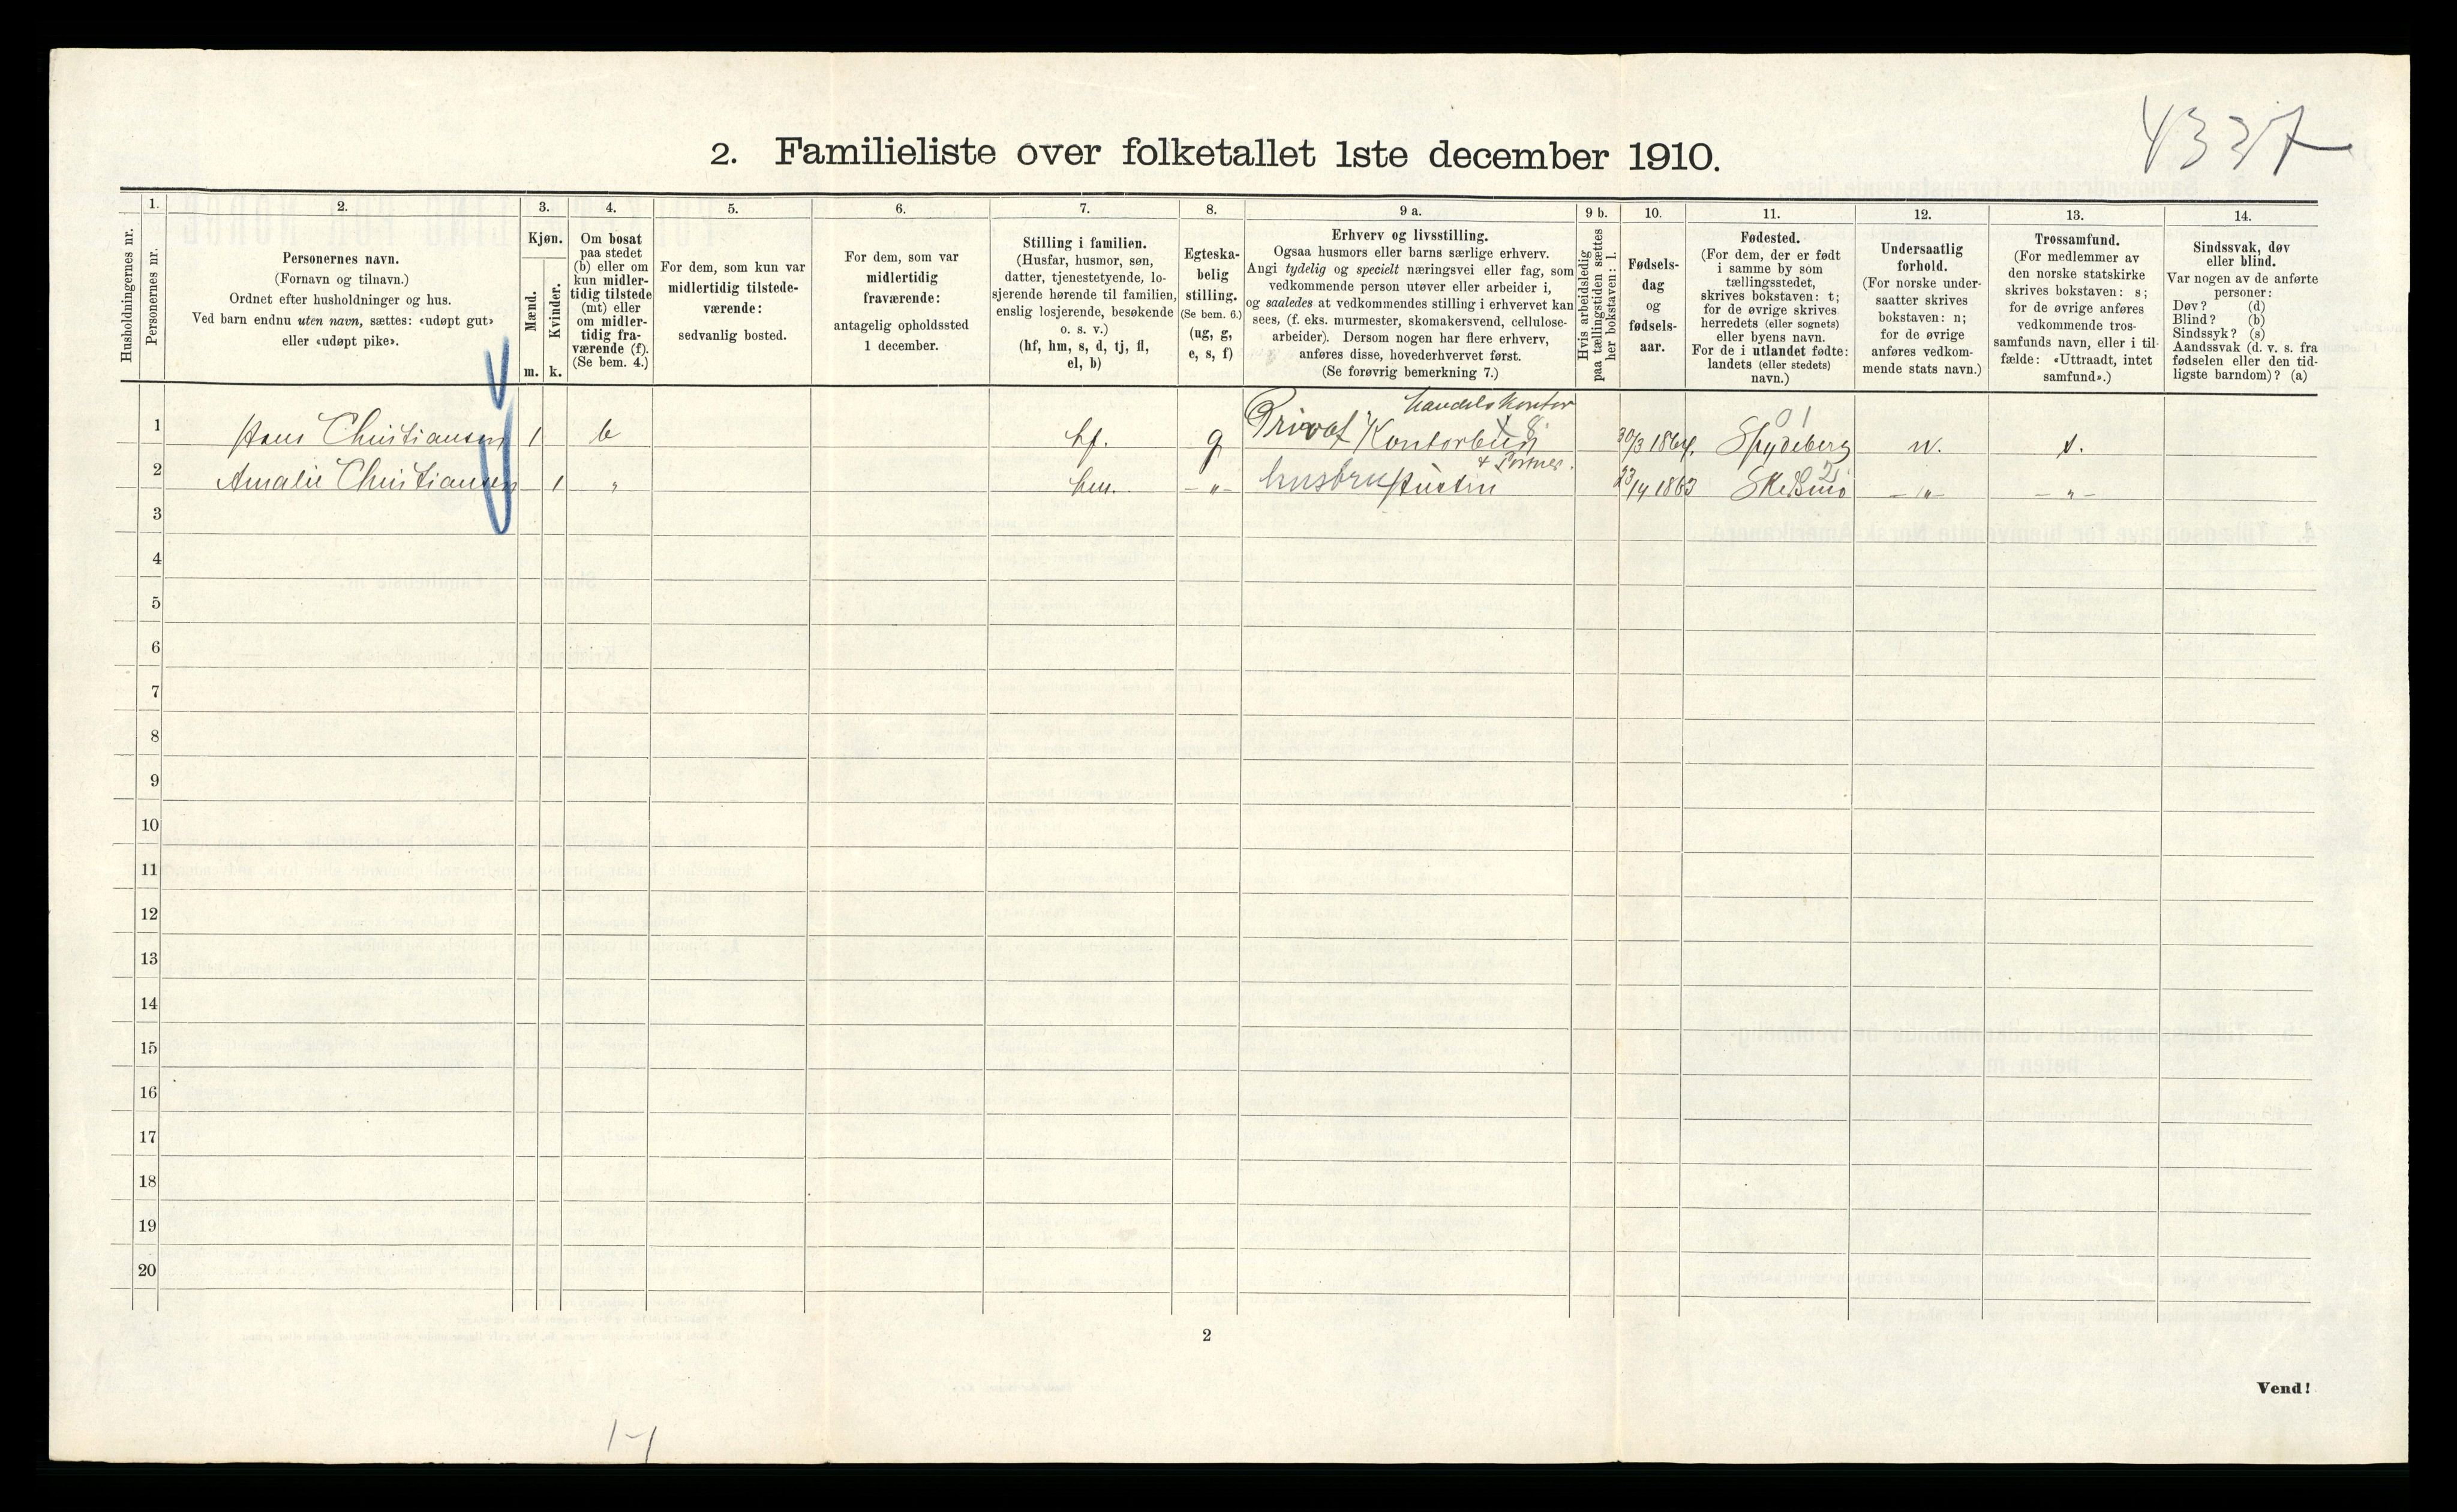 4337
2. Familieliste over folketallet 1ste december 1910.
Husholdningernes nr.
1.
Personernes nr.
2.
Personernes navn.
(Fornavn og tilnavn.)
Ordnet efter husholdninger og hus.
Ved barn endnu uten navn, sættes: «udøpt gut»
eller «udøpt pike».
3.
Kjøn.
Mænd.
m.
Kvinder.
k.
4.
Om bosat
paa stedet
(b) eller om
kun midler-
tidig tilstede
(mt) eller
om midler-
tidig fra-
værende (f).
(Se bem. 4.)
5.
For dem, som kun var
midlertidig tilstede-
værende:
sedvanlig bosted.
6.
For dem, som var
midlertidig
fraværende:
antagelig opholdssted
1 december.
7.
Stilling i familien.
(Husfar, husmor, søn,
datter, tjenestetyende, lo-
sjerende hørende til familien,
enslig losjerende, besøkende
o. s. v.)
(hf, hm, s, d, tj, fl,
el, b)
8.
Egteska-
belig
stilling.
(Se bem. 6.)
(ug, g,
e, s, f)
9 a.
Erhverv og livsstilling.
Ogsaa husmors eller barns særlige erhverv.
Angi tydelig og specielt næringsvei eller fag, som
vedkommende person utøver eller arbeider i,
og saaledes at vedkommendes stilling i erhvervet kan
sees, (f. eks. murmester, skomakersvend, cellulose-
arbeider). Dersom nogen har flere erhverv,
anføres disse, hovederhvervet først.
(Se forøvrig bemerkning 7.)
9 b.
Hvis arbeidsledig
paa tællingstiden sættes
her bokstaven: l.
10.
Fødsels-
dag
og
fødsels-
aar.
11.
Fødested.
(For dem, der er født
i samme by som
tællingsstedet,
skrives bokstaven: t;
for de øvrige skrives
herredets (eller sognets)
eller byens navn.
For de i utlandet fødte:
landets (eller stedets)
navn.)
12.
Undersaatlig
forhold.
(For norske under-
saatter skrives
bokstaven: n;
for de øvrige
anføres vedkom-
mende stats navn.)
13.
Trossamfund.
(For medlemmer av
den norske statskirke
skrives bokstaven: s;
for de øvrige anføres
vedkommende tros-
samfunds navn, eller i til-
fælde: «Uttraadt, intet
samfund».)
14.
Sindssvak, døv
eller blind.
Var nogen av de anførte
personer:
Døv? (d)
Blind? (b)
Sindssyk? (s)
Aandssvak (d. v. s. fra
fødselen eller den tid-
ligste barndom)? (a)
handelskontor
01
1 Hans Christiansen 1 b hf. g Privat Kontorbud 30/3 1864. Spydeberg n. s.
+ Portner.
2 Amalie Christiansen 1 " hm. -"- husbestüstin 1863 Skedsmo -"- -"-
3
4
5
6
7
8
9
10
11
12
13
14
15
16
17
18
19
20
2
Vend!
1-1